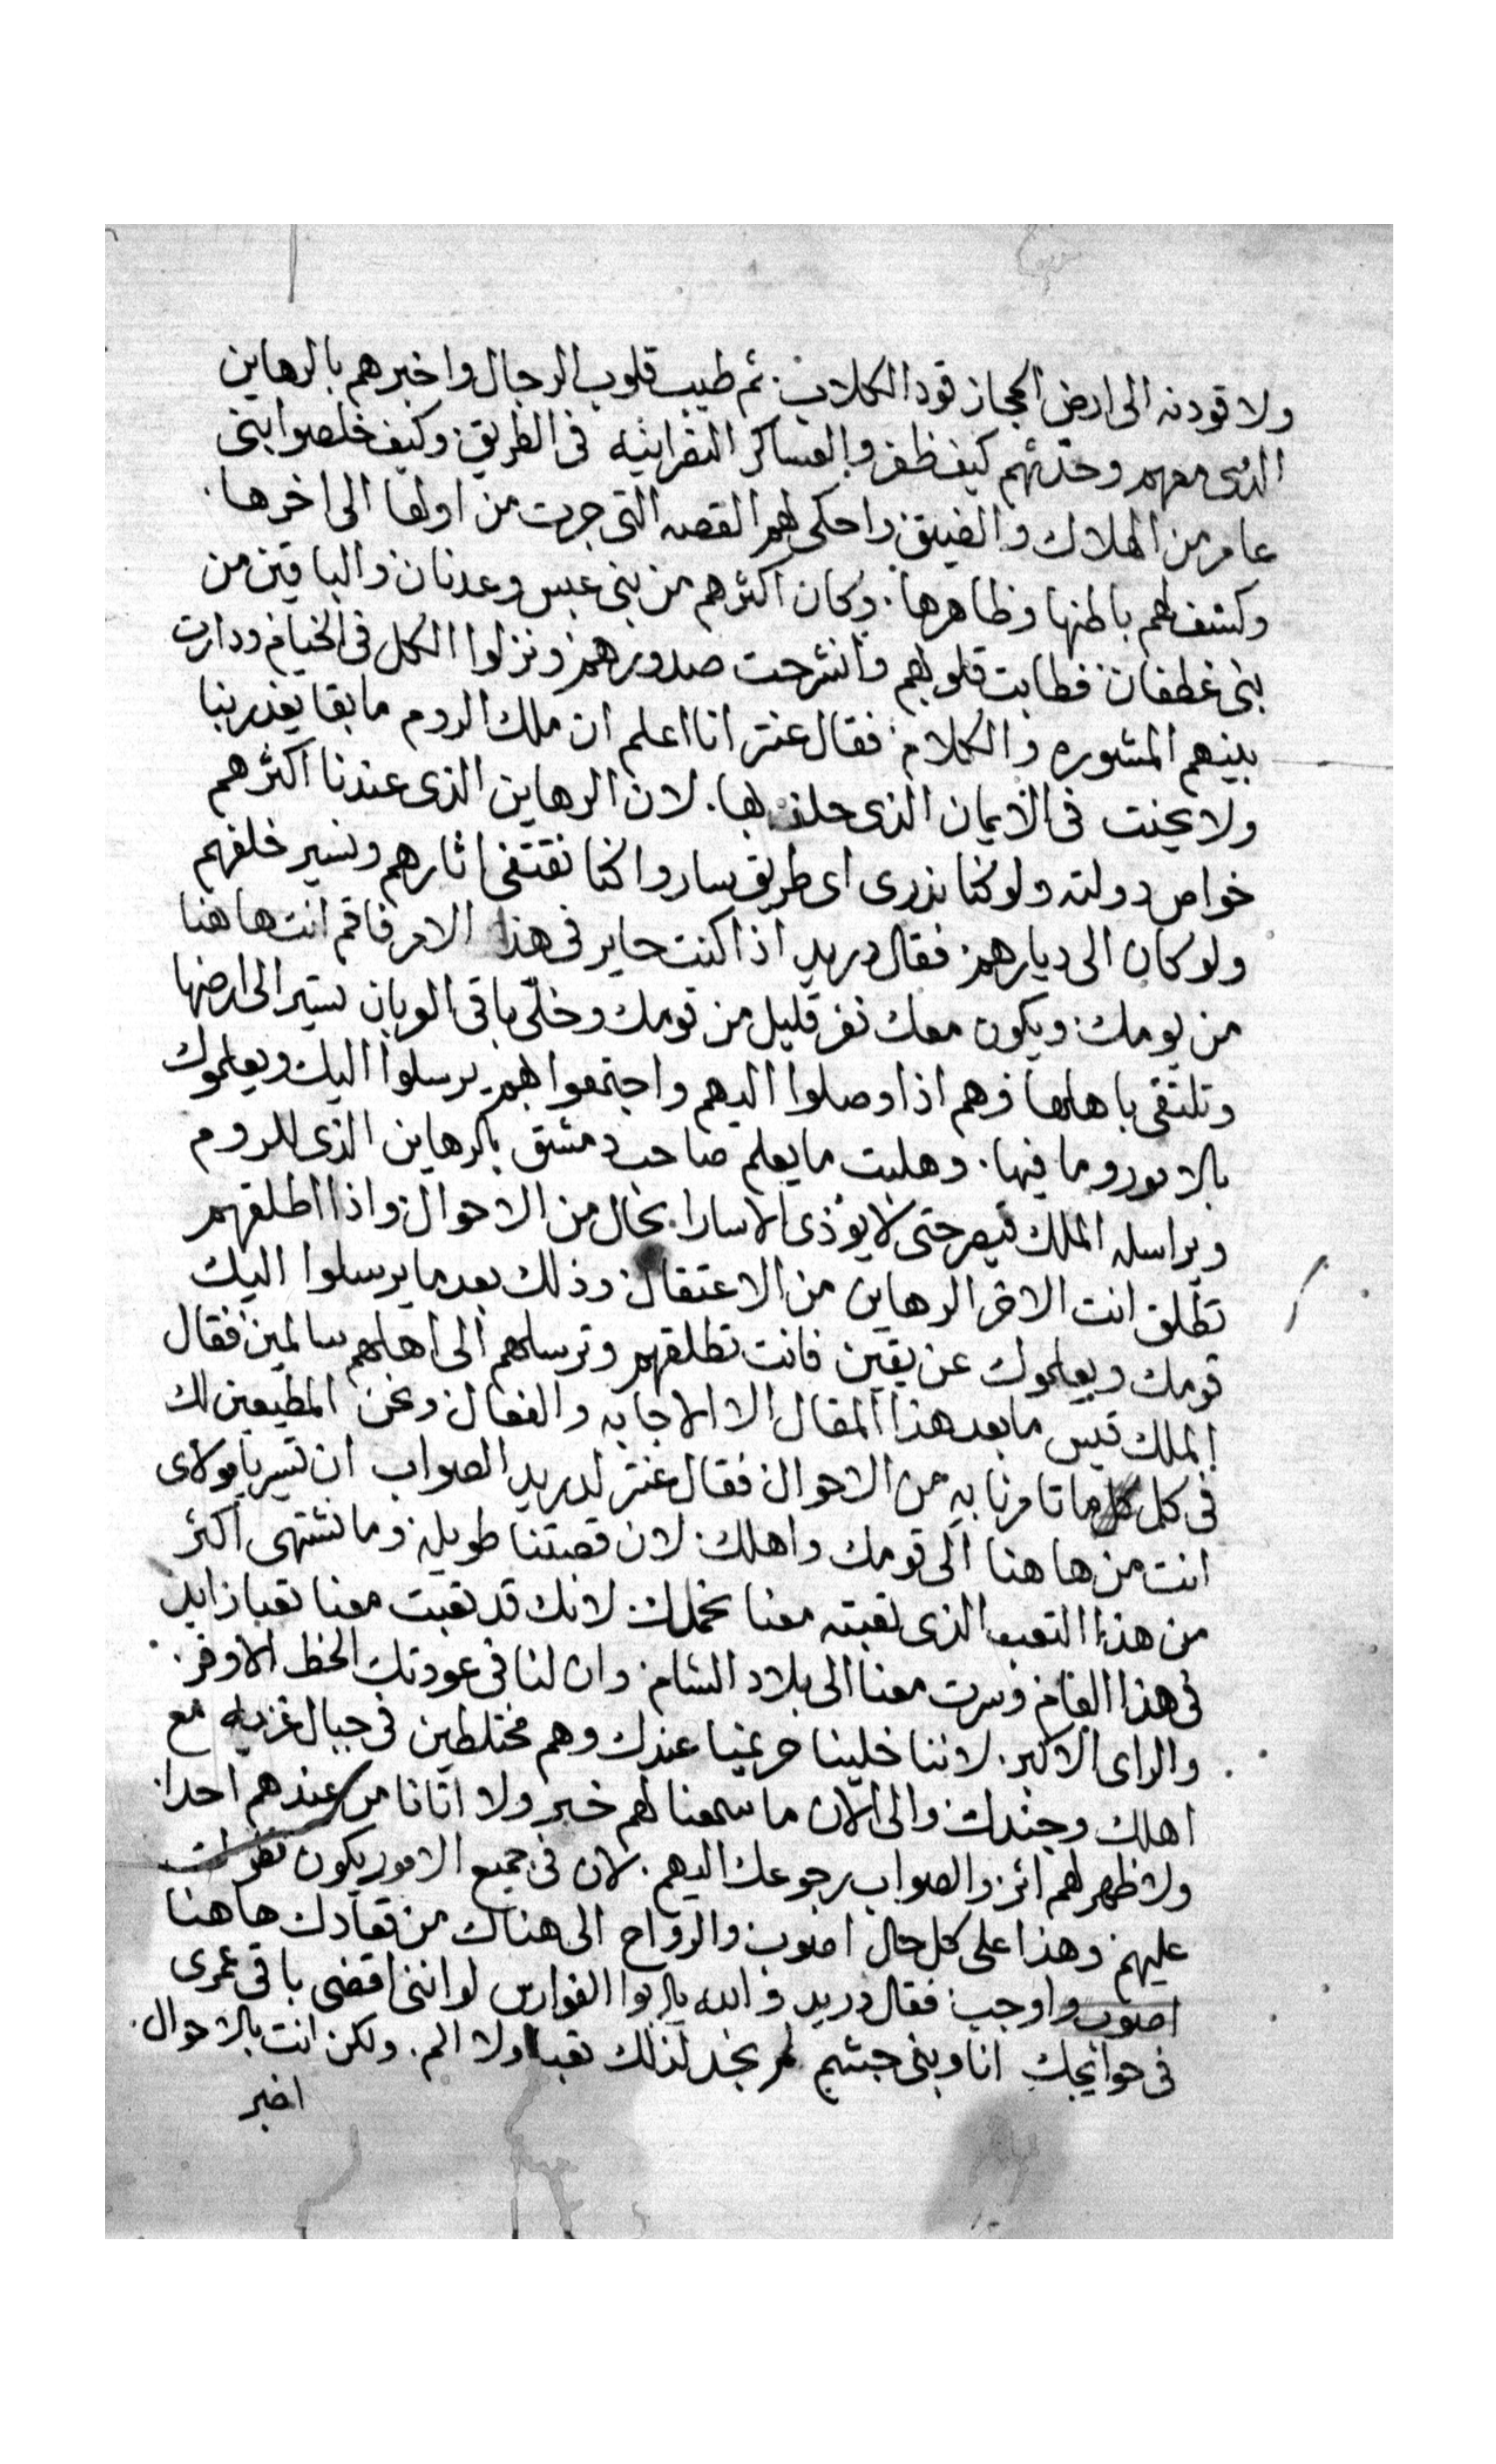 ولا قودنه الى ارض الحجاز قود الكلاب. ثم طيب قلوب الرجال واخبرهم بالرهاين
الذى معهم وحدثهم كيف ظفروا بالعساكر النصرانيه فى الطريق. وكيف خلصوا بنى
عامر من الهلاك والضيق. واحكى لهم القصه التى جرت من اولها الى اخرها.
وكشف لهم باطنها وظاهرها. وكان اكثرهم من بنى عبس وعدنان والباقين من
بنى غطفان. فطابت قلوبهم وانشرحت صدورهم ونزلوا الكل فى الخيام ودارت
بينهم المشوره والكلام. فقال عنتر انا اعلم ان ملك الروم ما بقا يغدر بنا
ولا يحنت فى الايمان الذى حلف بها. لان الرهاين الذى عندنا اكثرهم
خواص دولته ولو كنا ندرى اى طريق ساروا كنا نقتفى اثارهم ونسير خلفهم
ولو كان الى ديارهم. فقال دريد اذا كنت حاير فى هذا الامر فاقم انت هاهنا
من يومك. ويكون معك نفر قليل من قومك وخلى باقى العربان تسير الى ارضها
وتلتقى باهلها وهم اذا وصلوا اليهم واجتمعوا بهم. يرسلوا اليك ويعلموك
بالامور وما فيها. وهليت ما يعلم صاحب دمشق بالرهاين الذى للروم
ويراسله الملك قيصر حتى لا يوذى الاسارا بحال من الاحوال واذا اطلقهم
تطلق انت الاخر الرهاين من الاعتقال. وذلك بعد ما يرسلوا اليك
قومك ويعلموك عن يقين فانت تطلقهم وترسلهم الى اهلهم سالمين فقال
الملك قيس ما بعد هذا المقال الا الاجابه والفعال ونحن المطيعين لك
فى كل ما تامرنا به من الاحوال فقال عنتر لدريد الصواب ان تسير يا مولاى
انت من هاهنا الى قومك واهلك. لان قصتنا طويله وما نشتهى اكثر
من هذا التعب الذى تعبته معنا نحملك. لانك قد تعبت معنا تعبا زايد
فى هذا العام وسرت معنا الى بلاد الشام. وان لنا فى عودتك الحظ الاوفر.
والراى الاكبر. لاننا خلينا حريمنا عندك وهم مختلطين فى جبال غزيه مع
اهلك وجندك. والى الان ما سمعنا لهم خبر ولا اتانا من عندهم احدا.
ولا ظهر لهم اثر. والصواب رجوعك اليهم. لان فى جميع الامور يكون نظرك
عليهم وهذا على كل حال اصوب والرواح الى هناك من قعادك هاهنا
اصوب واوجب. فقال دريد والله يا ابوا الفوارس لو اننى اقضى باقى عمرى
فى حوايجك انا وبنى جشم لم نجد لذلك تعبا ولا الم. ولكن انت بالاحوال.
اخبر